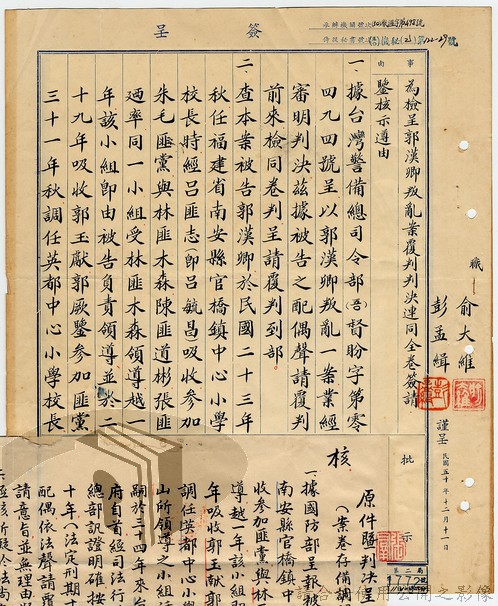 簽呈
事由
為檢呈郭漢卿叛亂案覆判判決連同全卷簽請
鑒核示遵由
職
俞大維
彭孟緝
謹呈
民國五十年十二月十二日
一、據台灣警備總司令部(吾)督盼字第零
四九四號呈以郭漢卿叛亂一案業經
審明判決茲據被告之配偶聲請覆判
前來檢同卷判呈請覆判到部
二、查本案被告郭漢卿於民國二十三年
秋任福建省南安縣官橋鎮中心小學
校長時經呂匪志(即呂毓昌吸收參加
朱毛匪黨與林匪木森陳匪道彬張匪
迺率同一小組受林匪木森領導越一
年該小組即由被告負責領導並於二
十九年吸收郭玉猷郭厥鑒參加匪黨
三十一年秋調任英都中心小學校長
批示
核
原件暨判決呈
(案卷存備調
一、據國防部呈報被
南安縣官橋鎮中
收參加匪黨與林
導越一年該小組
年吸收郭玉猷郭
調任英都中心小
山所領導之小組活
嗣於三十四年來台
府自首經司法行
總部訊證明確按
十年(法定刑期十
配偶依法聲請覆
請意旨並無理由
第二局
1772